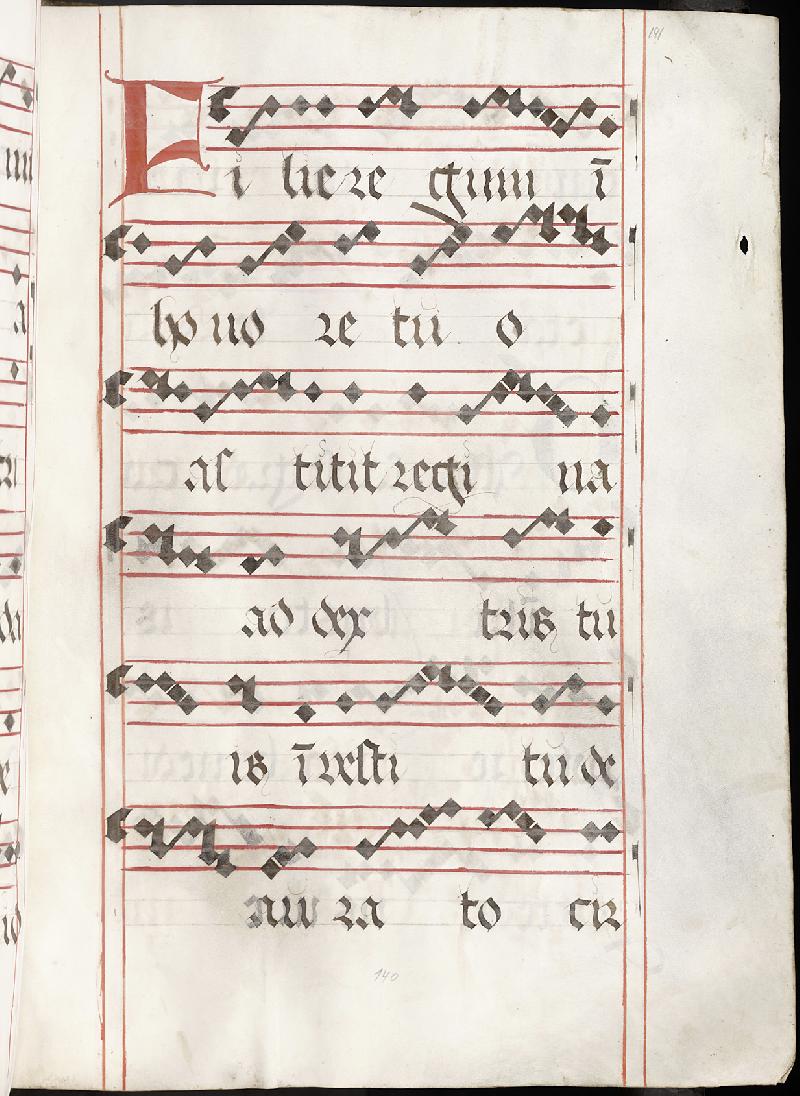 191
Fi lie re gum ī
ho no re tu o
as titit regi na
ad dex tris tu
is ī vesti tu de
au ra to cir
140